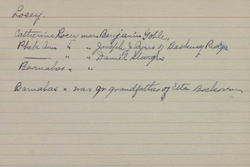 Losey.
Catherine Losey mar. Benjamin Tobler
Phebe Ann " " Joseph Z Ayres of Basking Ridge
" " Daniel Sturges
Barnabas " "
Barnabas " was gr. grandfather of Etta